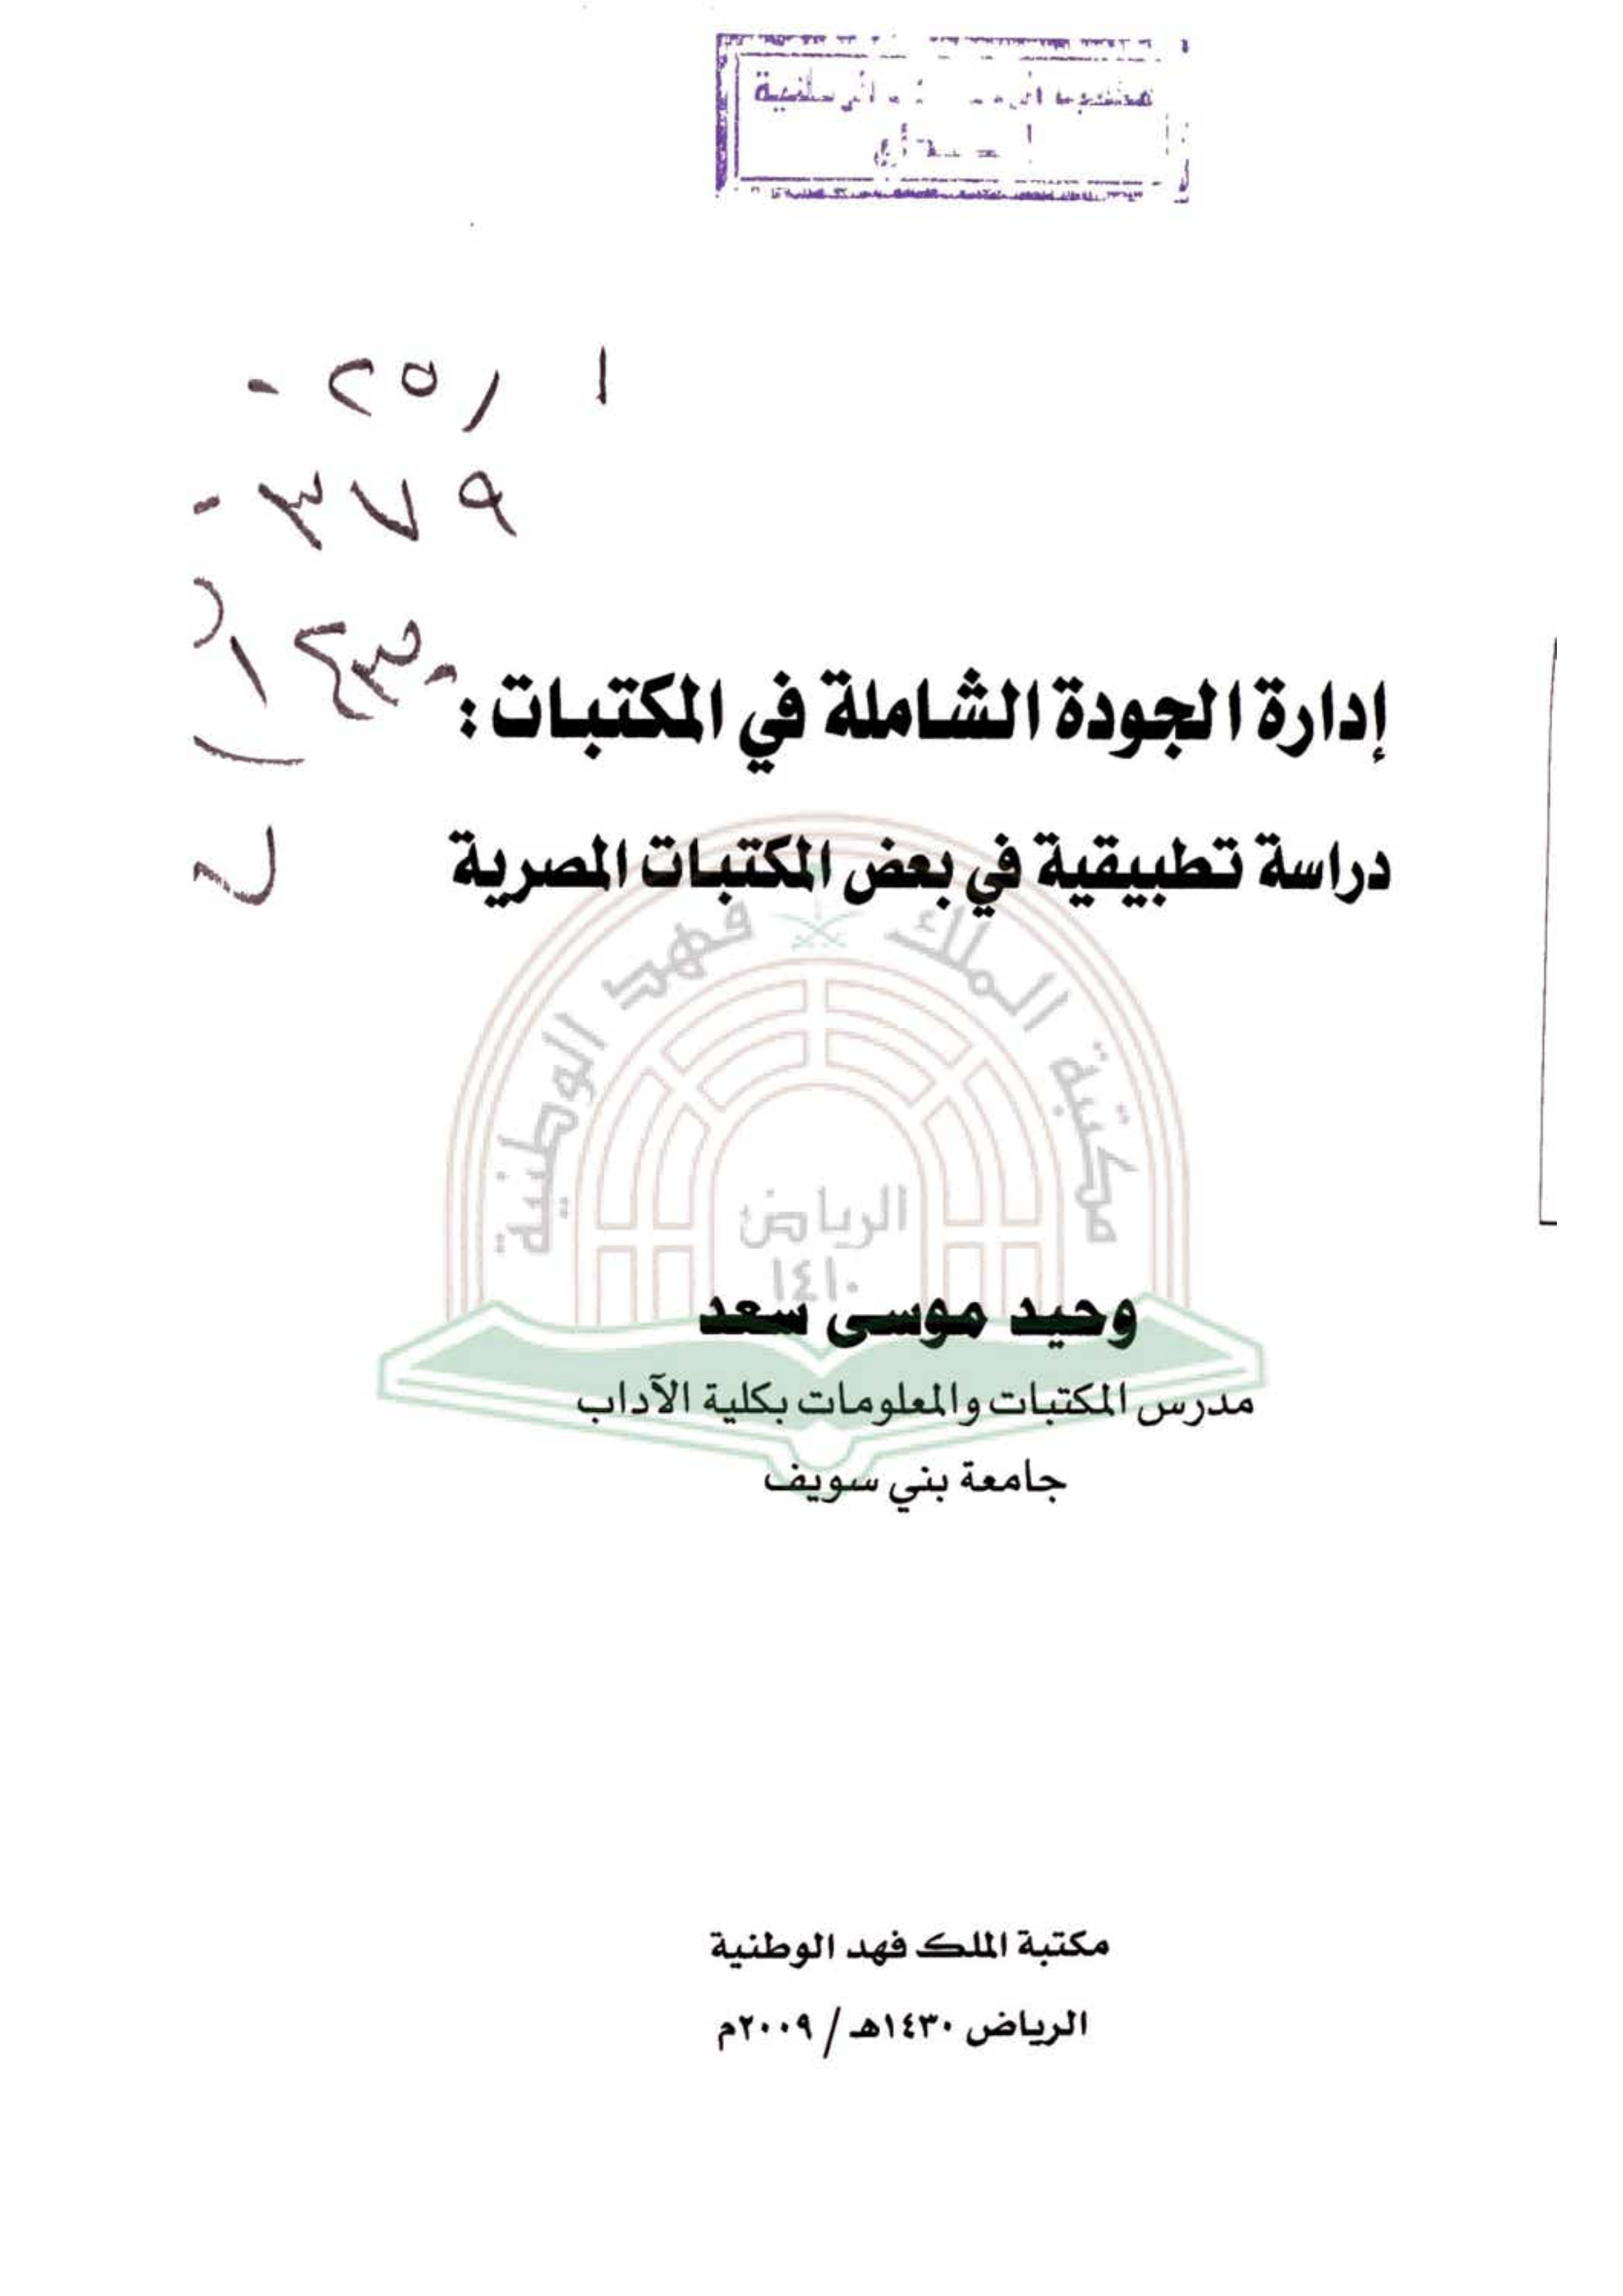 إدارة الجودة الشاملة في المكتبات :
دراسة تطبيقية في بعض المكتبات المصرية
مكتبة الملك فهد الوطنية
الرياض
١٤١٠
وحيد موسى سعد
مدرس المكتبات والمعلومات بكلية الآداب
جامعة بني سويف
مكتبة الملك فهد الوطنية
الرياض ١٤٣٠هـ / ٢٠٠٩م